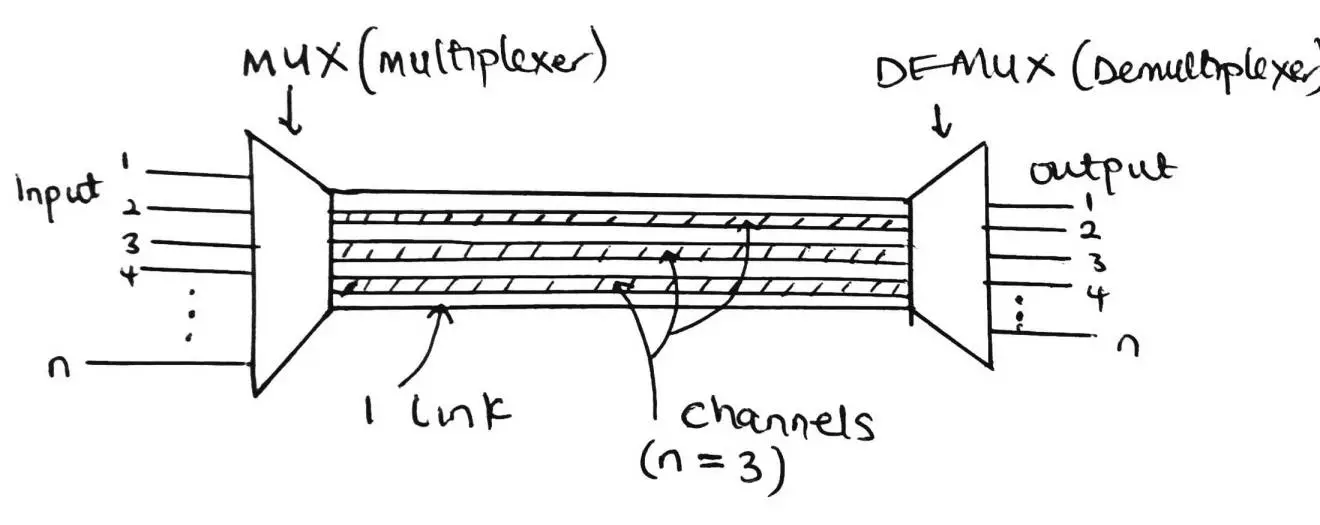 MUX (multiplexer)
DEMUX (Demultiplexer)
Input
1
2
3
4
n
output
1
2
3
4
n
1 link
channels
(n = 3)